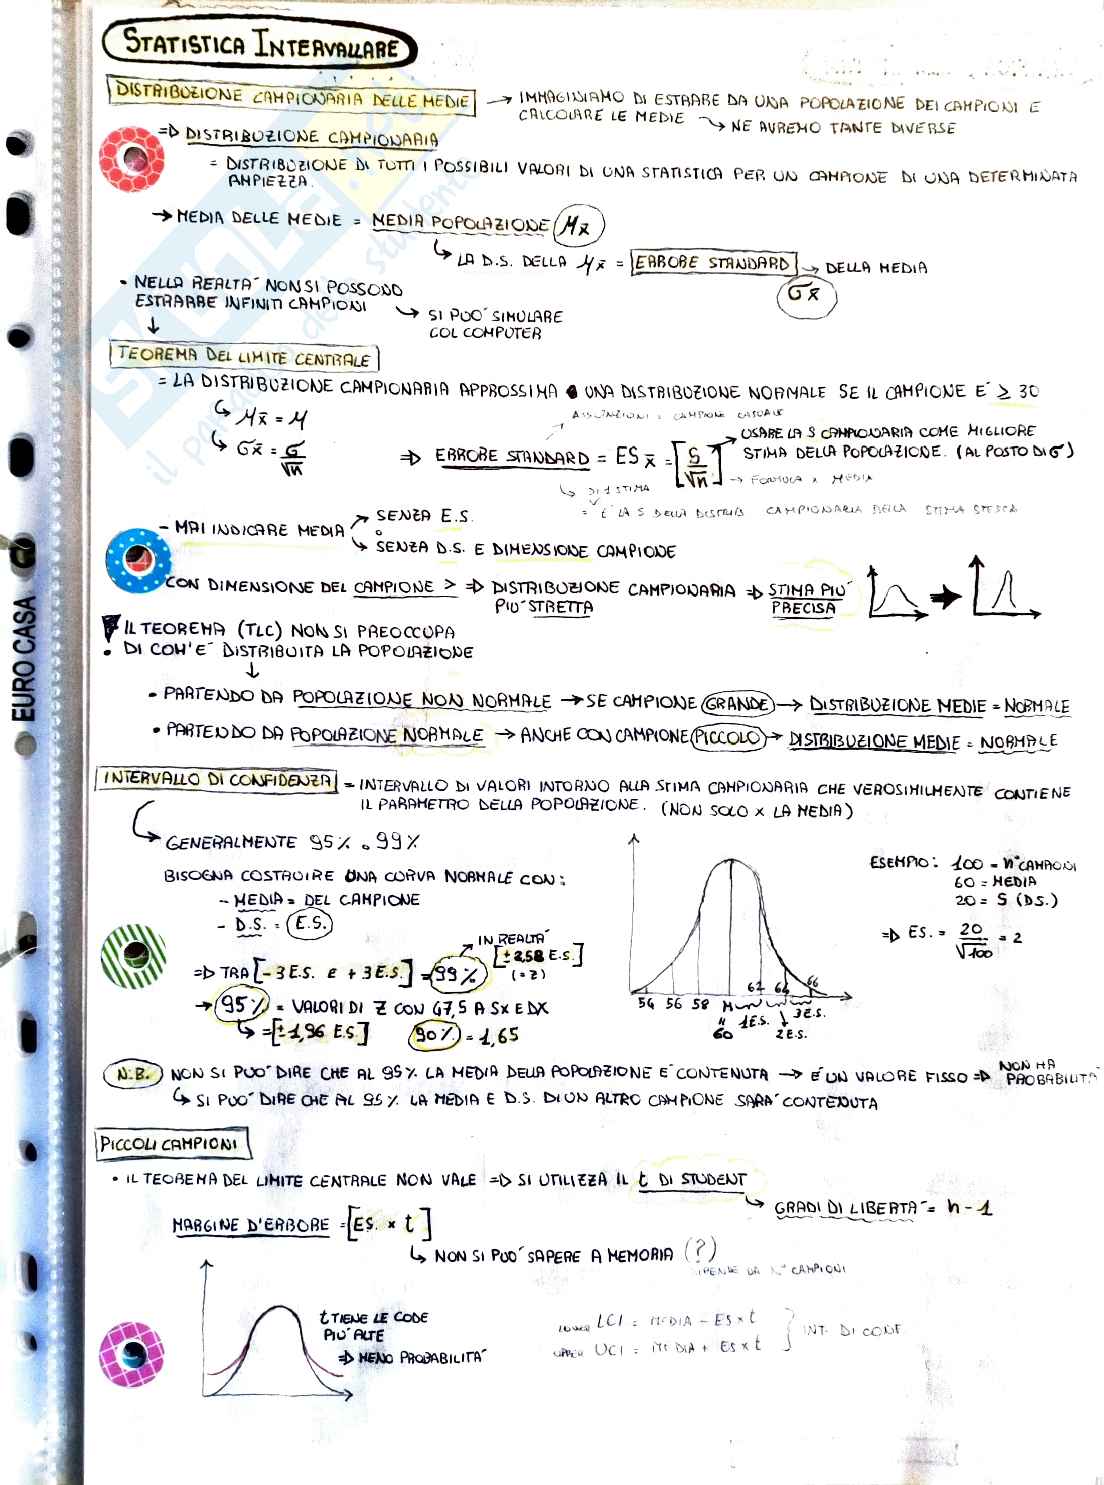 STATISTICA INTERVALLARE
DISTRIBUZIONE CAMPIONARIA DELLE MEDIE → IMMAGINIAMO DI ESTRARRE DA UNA POPOLAZIONE DEI CAMPIONI E
CALCOLARE LE MEDIE → NE AVREMO TANTE DIVERSE
⇒ DISTRIBUZIONE CAMPIONARIA
= DISTRIBUZIONE DI TUTTI I POSSIBILI VALORI DI UNA STATISTICA PER UN CAMPIONE DI UNA DETERMINATA
AMPIEZZA.
→ MEDIA DELLE MEDIE = MEDIA POPOLAZIONE μx̄
↳ LA D.S. DELLA μx̄ = ERRORE STANDARD → DELLA MEDIA
σx̄
• NELLA REALTA' NON SI POSSONO
ESTRARRE INFINITI CAMPIONI
↳ SI PUO' SIMULARE
COL COMPUTER
↓
TEOREMA DEL LIMITE CENTRALE
= LA DISTRIBUZIONE CAMPIONARIA APPROSSIMA UNA DISTRIBUZIONE NORMALE SE IL CAMPIONE E' ≥ 30
↳ μx̄ = μ
↳ σx̄ = σ/√n
ASSUNZIONI: CAMPIONE CASUALE
⇒ ERRORE STANDARD = ES x̄ = [S/√n]
USARE LA S CAMPIONARIA COME MIGLIORE
STIMA DELLA POPOLAZIONE. (AL POSTO DI σ)
→ FORMULA X MEDIA
↳ DI 1 STIMA
= E' LA S DELLA DISTRIB CAMPIONARIA DELLA STIMA STESSA
- MAI INDICARE MEDIA → SENZA E.S.
↳ SENZA D.S. E DIMENSIONE CAMPIONE
CON DIMENSIONE DEL CAMPIONE > ⇒ DISTRIBUZIONE CAMPIONARIA ⇒ STIMA PIU'
PIU' STRETTA PRECISA
! IL TEOREMA (TLC) NON SI PREOCCUPA
DI COM'E' DISTRIBUITA LA POPOLAZIONE
↓
• PARTENDO DA POPOLAZIONE NON NORMALE → SE CAMPIONE GRANDE → DISTRIBUZIONE MEDIE = NORMALE
• PARTENDO DA POPOLAZIONE NORMALE → ANCHE CON CAMPIONE PICCOLO → DISTRIBUZIONE MEDIE = NORMALE
INTERVALLO DI CONFIDENZA = INTERVALLO DI VALORI INTORNO ALLA STIMA CAMPIONARIA CHE VEROSIMILMENTE CONTIENE
IL PARAMETRO DELLA POPOLAZIONE. (NON SOLO X LA MEDIA)
GENERALMENTE 95% o 99%
BISOGNA COSTRUIRE UNA CURVA NORMALE CON:
- MEDIA = DEL CAMPIONE
- D.S. = E.S.
⇒ TRA [-3 E.S. E +3 E.S.] = 99%
IN REALTA'
[±2,58 E.S.]
(= Z)
→ 95% = VALORI DI Z CON 47,5 A SX E DX
↳ = [±1,96 E.S.] 90% = 1,65
54 56 58 M 62 64 66
60 1E.S. 2E.S. 3E.S.
ESEMPIO: 100 = n° CAMPIONI
60 = MEDIA
20 = S (DS.)
⇒ ES. = 20/√100 = 2
N.B. NON SI PUO' DIRE CHE AL 95% LA MEDIA DELLA POPOLAZIONE E' CONTENUTA → E' UN VALORE FISSO ⇒ NON HA
PROBABILITA'
↳ SI PUO' DIRE CHE AL 95% LA MEDIA E D.S. DI UN ALTRO CAMPIONE SARA' CONTENUTA
PICCOLI CAMPIONI
• IL TEOREMA DEL LIMITE CENTRALE NON VALE ⇒ SI UTILIZZA IL t DI STUDENT
↳ GRADI DI LIBERTA' = n - 1
MARGINE D'ERRORE = [ES. × t]
↳ NON SI PUO' SAPERE A MEMORIA (?)
DIPENDE DA N° CAMPIONI
t TIENE LE CODE
PIU' ALTE
⇒ MENO PROBABILITA'
LOWER LCI = MEDIA - ES × t
UPPER UCI = MEDIA + ES × t
} INT. DI CONF
EURO CASA
SKUOLA.net
il paradiso dello studente